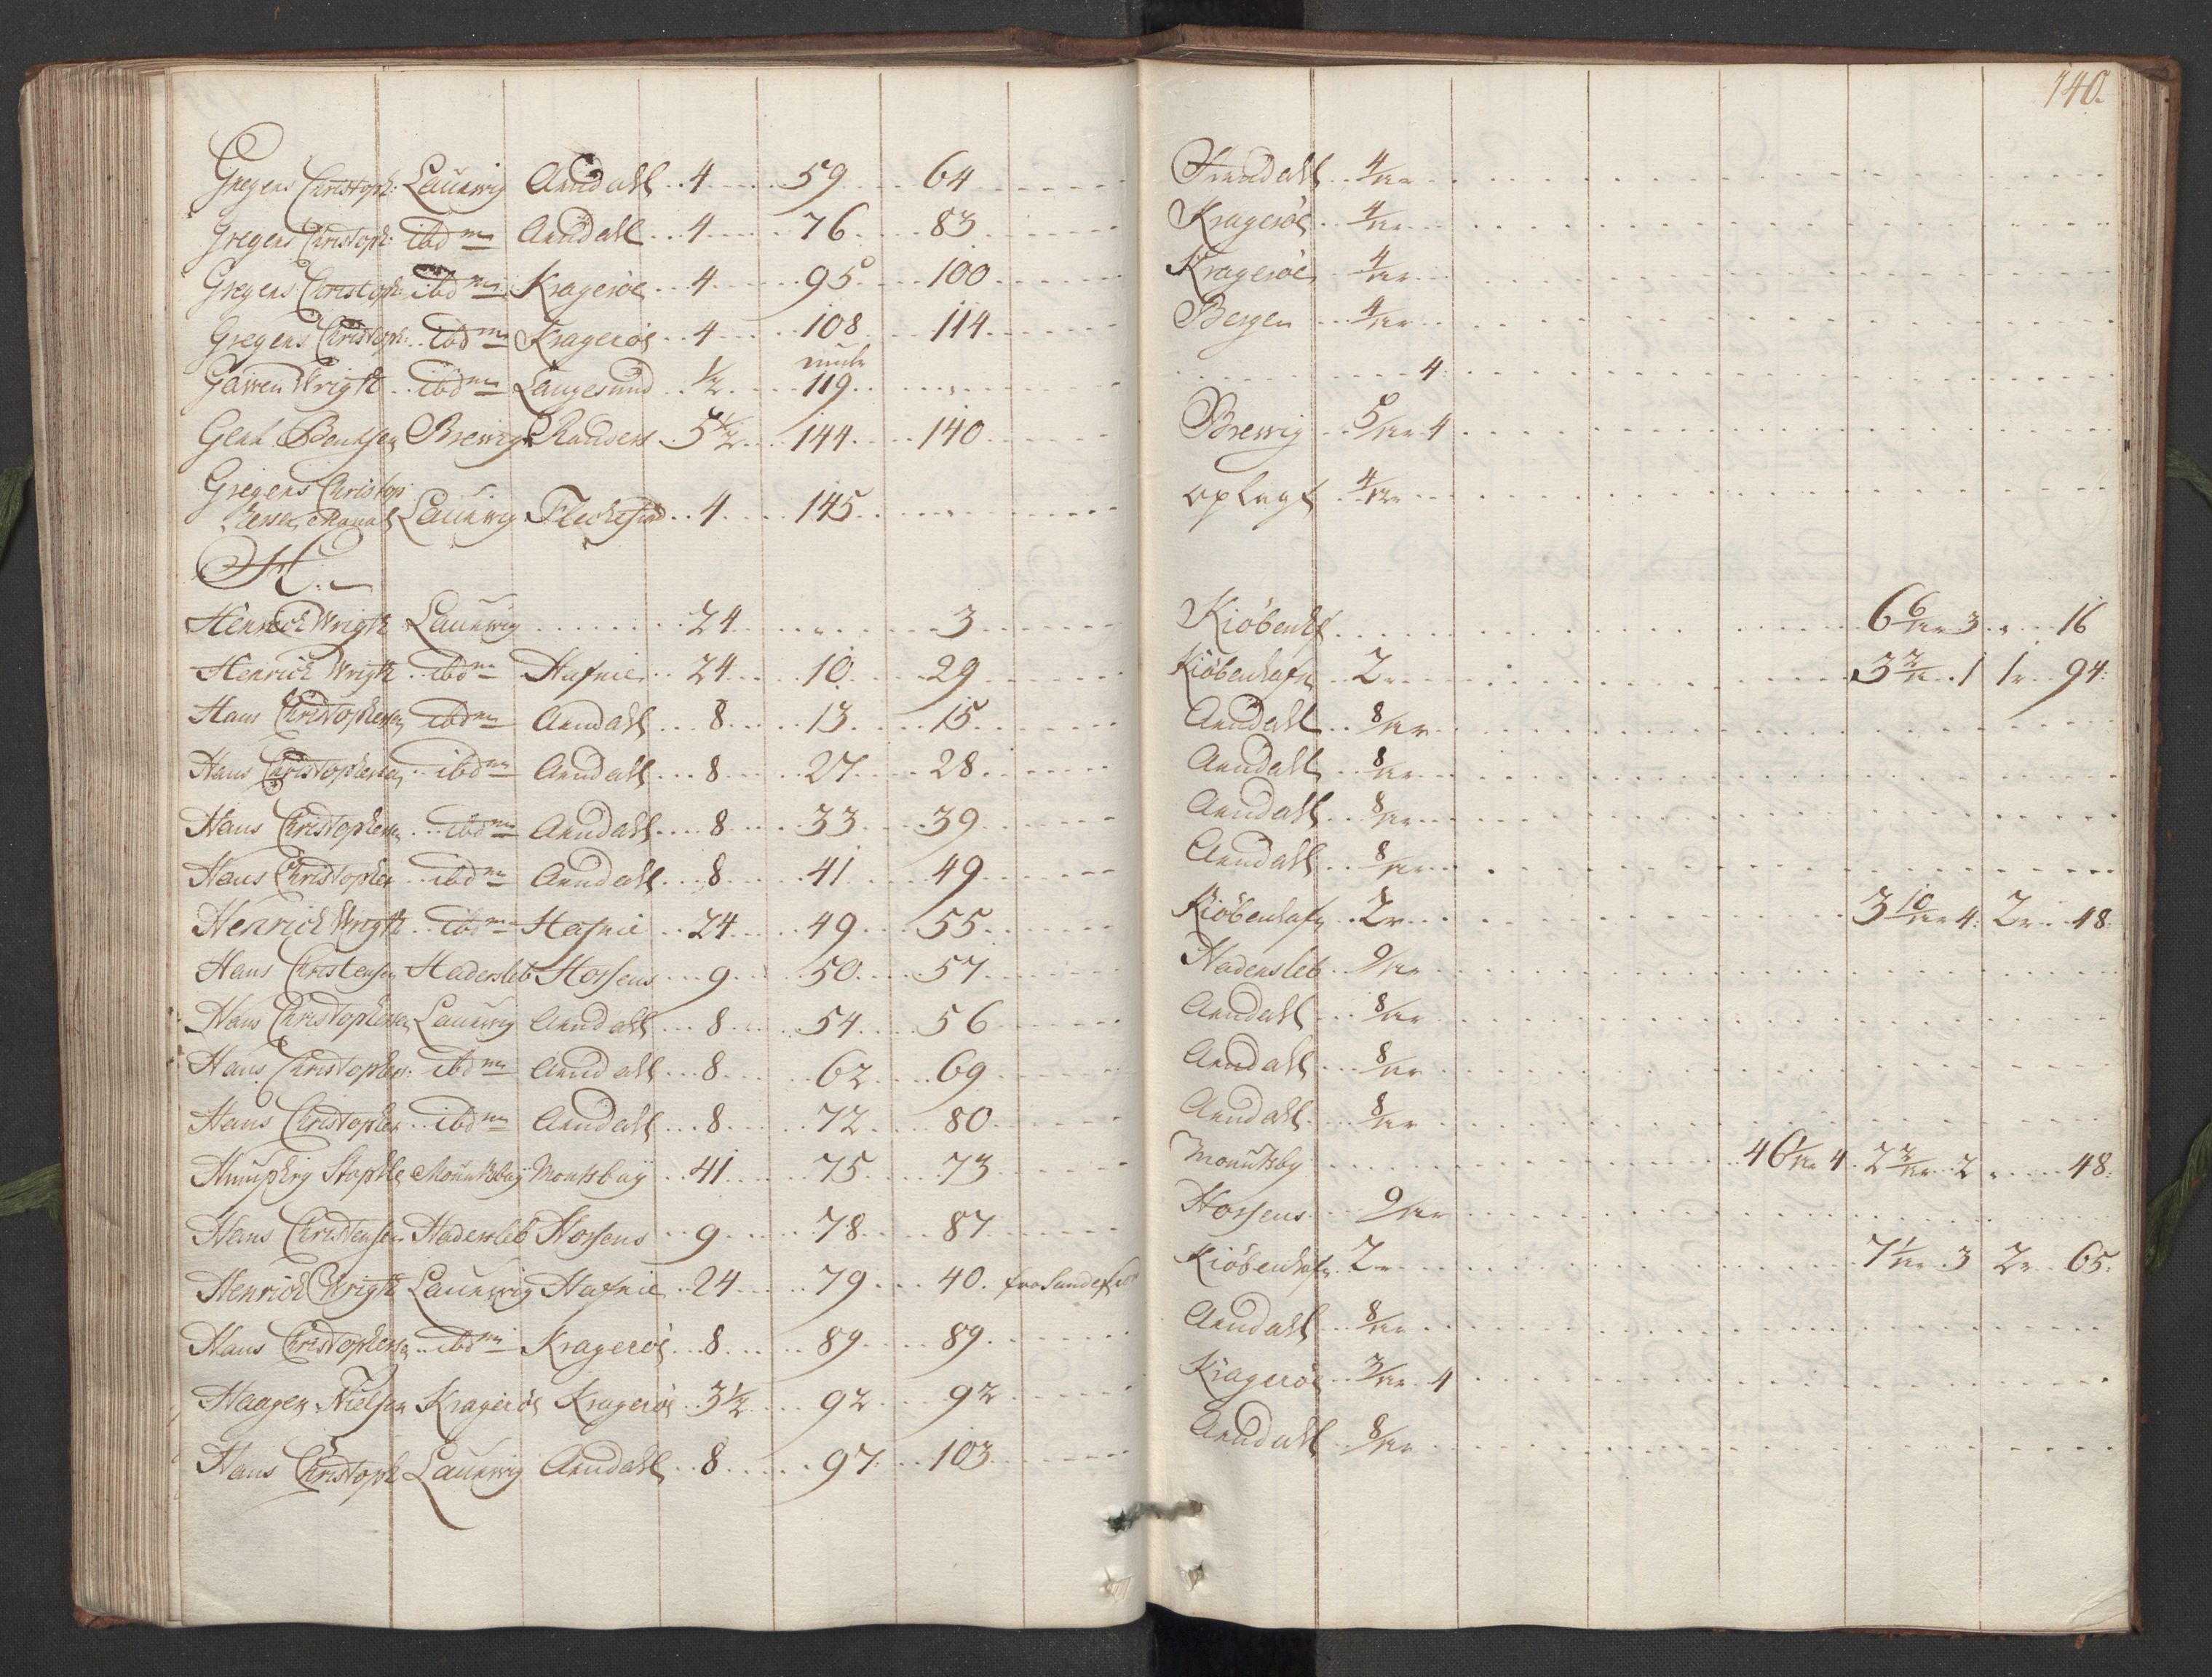 140.
Gregers Christoph: Laurwig Arendall 4 59 64 Arendall 4/12
Gregers Christoph: ibdm Arendall 4 76 83 Kragerøe 4/12
Gregers Christoph: ibdm Kragerøe 4 95 100 Kragerøe 4/12
Gregers Christoph: ibdm Kragerøe 4 108 114 Bergen 4/12
Gawen Wrigth ibdm Langesund 1/2 119 4
Brewig Randers 5 1/2 144 140 Brewig 5/12 4
Gregers Christop
Laurwig 4 145 oplagt 4/12
H:
Henrich Wrigth Laurwig 24 3 Kiöbenhf 6 6/12 3 16
Henrich Wrigth ibdm Hafnie 24 10 29 Kiöbenhafn 2 3 2/12 1 1 94:
Hans Christophersen ibdm Arendall 8 13 15 Arendall 8/12
Hans Christophersen ibdm Arendall 8 27 28 Arendall 8/12
Hans Christophersen ibdm Arendall 8 33 39 Arendall 8/12
Hans Christopher ibdm Arendall 8 41 49 Arendall 8/12
Henrich Wrigth ibdm Hafnie 24 49 55 Kiöbenhafn 2 3 10/12 4: 2 48:
Hans Christensen Hadersleb Horsens 9 50 57 Hadersleb 9/12
Hans Christophersen Laurwig Arendall 8 54 56 Arendall 8/12
Hans Christopher: ibdm Arendall 8 62 69 Arendall 8/12
Hans Christopher ibdm Arendall 8 72 80 Arendall 8/12
Humphry Mounksbay Monksbay 41 75 73 Mounksby 46 1/12 4 2 2/12 2 48:
Hans Christensen Hadersleb Horsens 9 78 87 Horsens 9/12
Henrich Wrigth Laurwig Hafnie 24 79 40. fra Sandefior Kiöbenhafn 2 7 1/12 3 2 65:
Hans Christophersen ibdm Kragerøe 8 89 89 Arendall 8/12
Haagen Nielsen Kragerøe Kragerøe 3 1/2 92 92 Kragerøe 3/12 4
Hans Christoph Laurwig Arendall 8 97: 103 Arendall 8/12